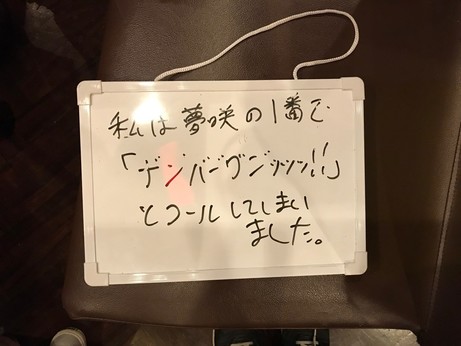 私は夢咲の1番で
「デンバーグジッッッ!!」
とコールしてしまい
ました。